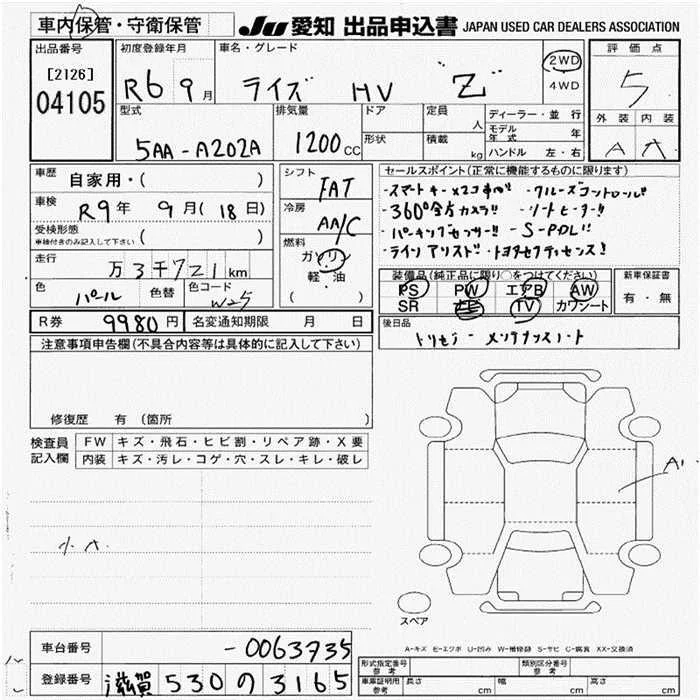 車内保管・守衛保管
JU 愛知 出品申込書 JAPAN USED CAR DEALERS ASSOCIATION
出品番号
[2126]
04105
初度登録年月
R6 9月
車名・グレード
ライズ HV "Z"
2WD
4WD
評価点
5
外装 内装
A A
型式
5AA-A202A
排気量
1200 CC
ドア
形状
定員 人
積載 kg
ディーラー・並行
モデル年式 年
ハンドル 左・右
車歴 自家用・( )
車検 R9年 9月(18日)
受検形態
車検付きのみ記入して下さい ( )
走行 万3千721km
色 パール 色替 色コード W25
シフト FAT
冷房 AA/C
燃料 ガソリン
軽・油
( )
セールスポイント(正常に機能するものに限ります)
・スマートキー×2コ・クルーズコントロール!!
・360°全方カメラ!!・シートヒーター!!
・パーキングセンサー!!・S-PDL!!
・ライン アシスト・トヨタセフティセンス!
装備品(純正品に限り〇をつけてください)
PS PW エアB AW
SR ナビ TV カワシート
新車保証書
有・無
R券 9980円 名変通知期限 月 日
後日品
トリセツ メンテナンスノート
注意事項申告欄(不具合内容等は具体的に記入して下さい)
修復歴 有 (箇所 )
検査員記入欄
FW キズ・飛石・ヒビ割・リペア跡・X要
内装 キズ・汚レ・コゲ・穴・スレ・キレ・破レ
A1
小A
スペア
A-キズ E-エクボ U-凹み W-補修跡 S-サビ C-腐蝕 XX-交換済
車台番号 -0063735
登録番号 滋賀 530 の 3165
形式指定番号 参考
類別区分番号 参考
車庫証明用 参考 長さ cm 幅 cm 高さ cm